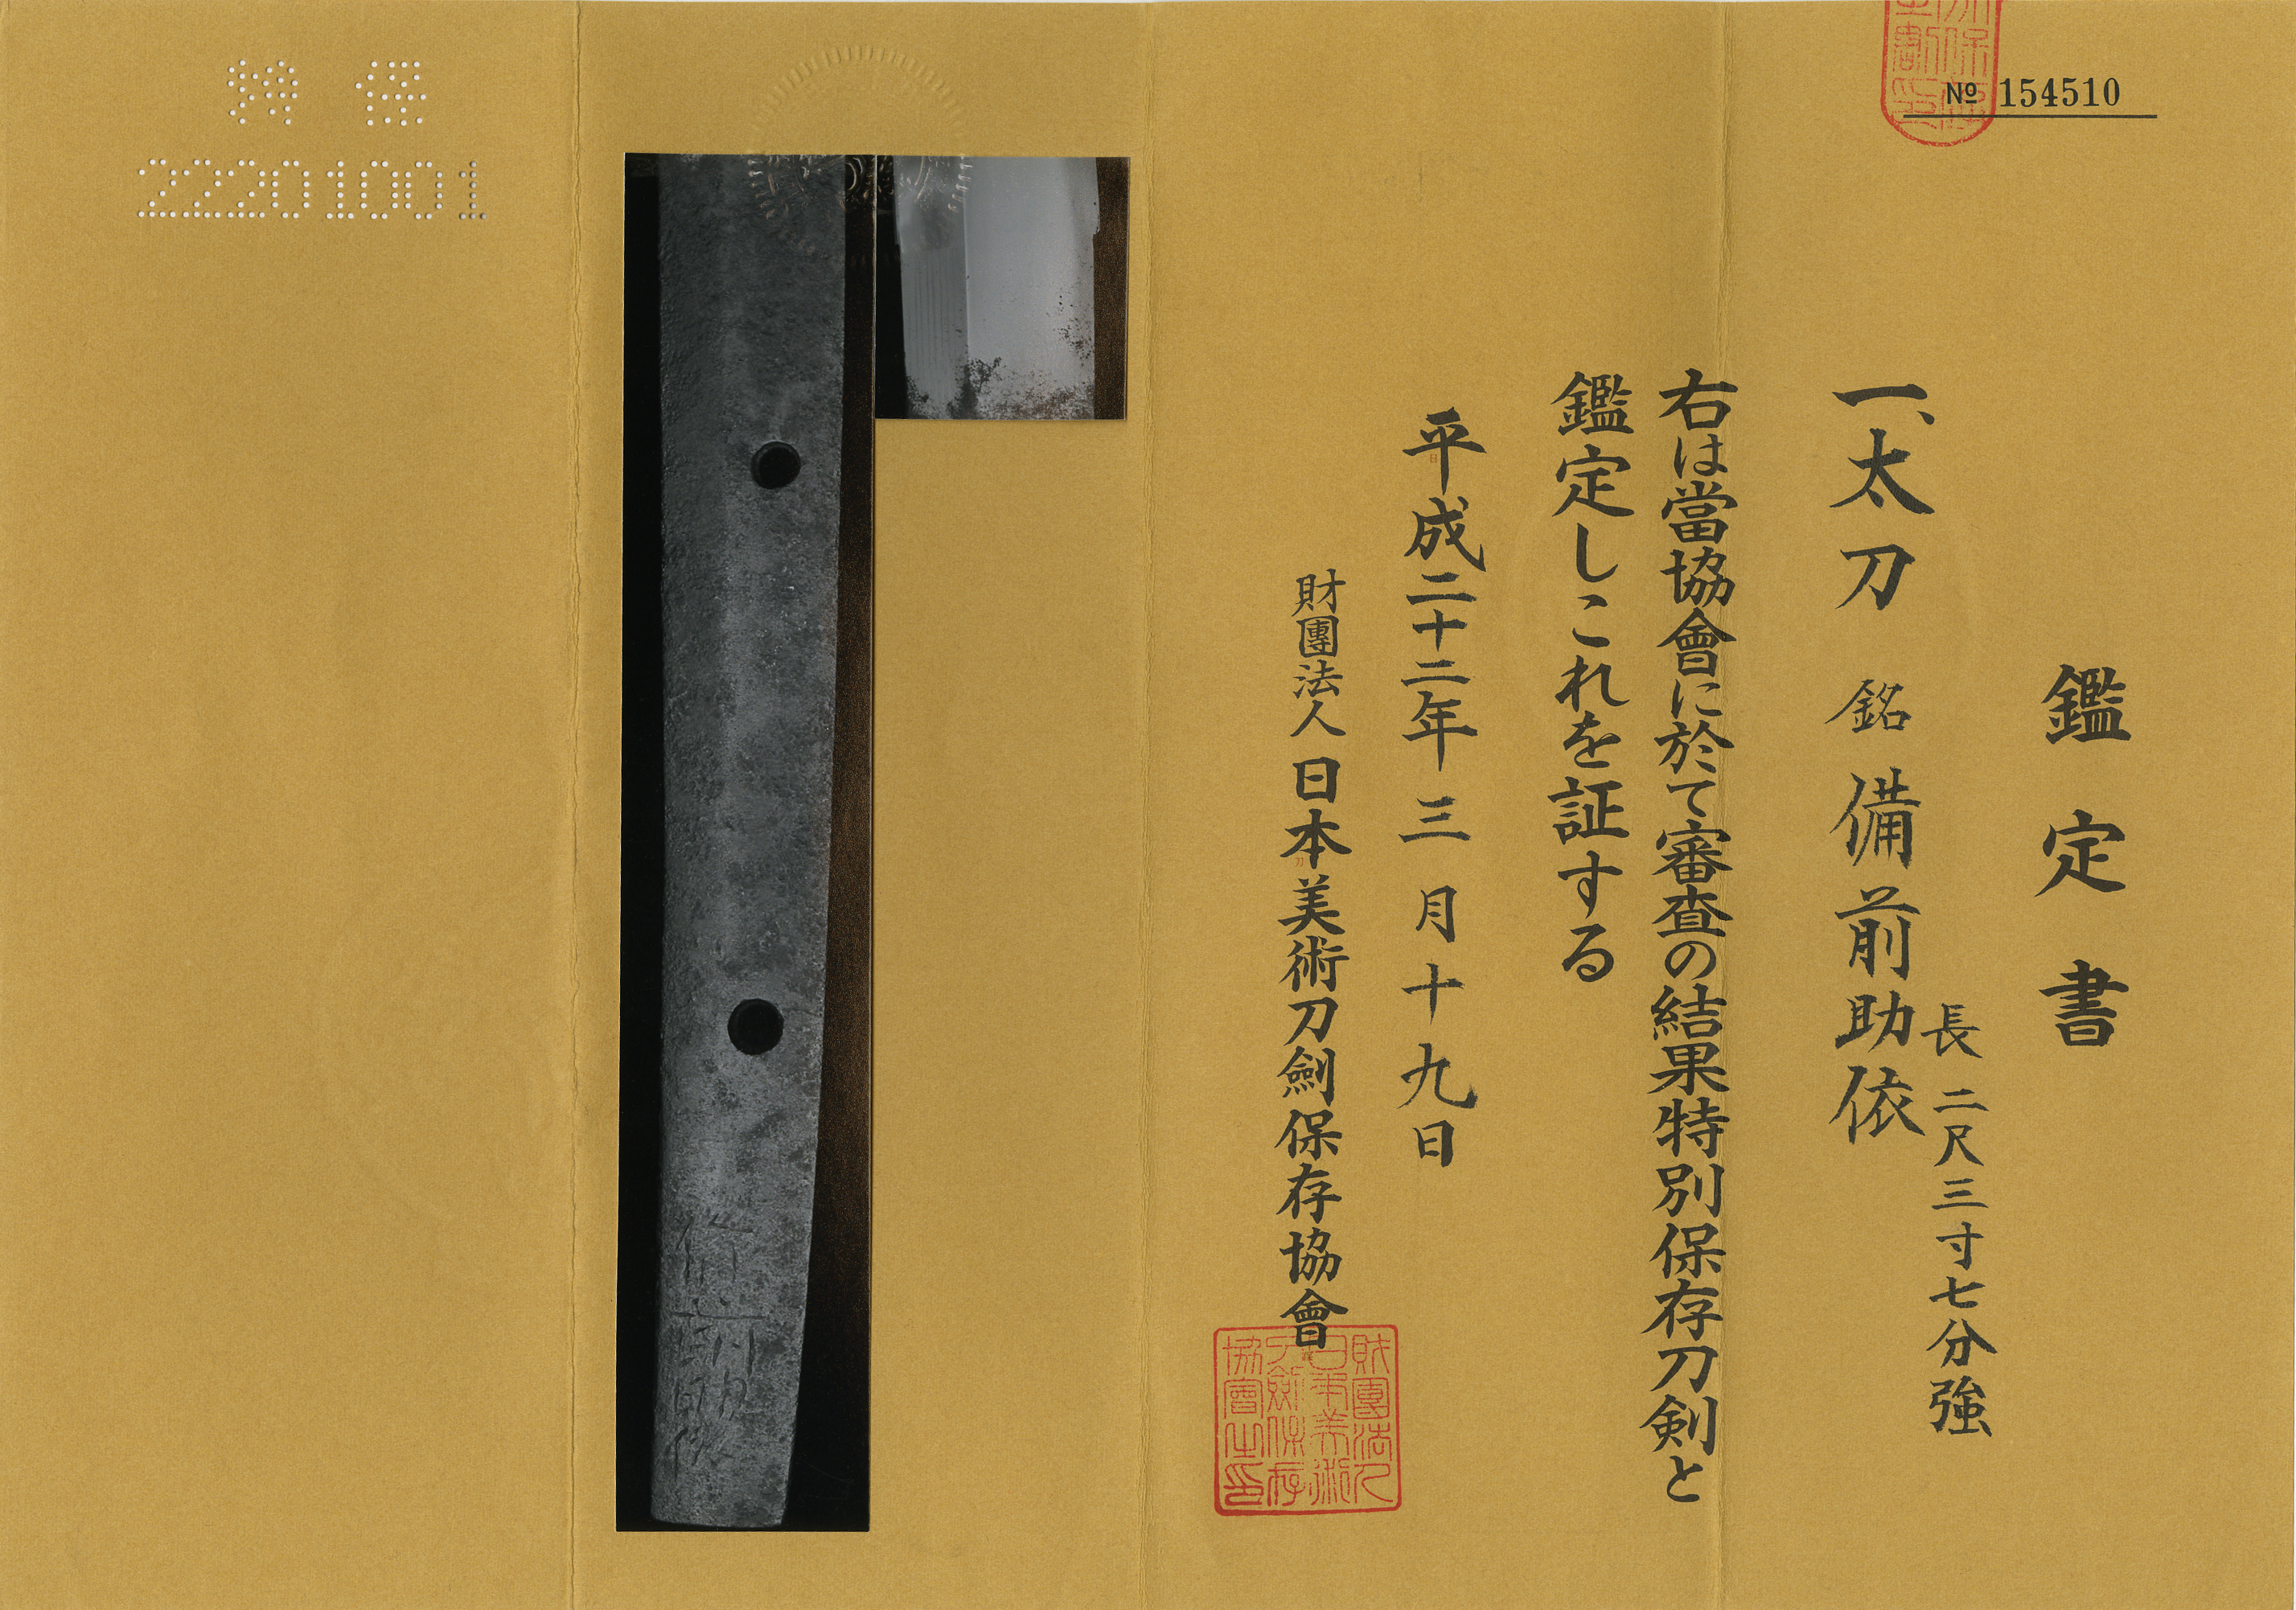 No 154510
鑑定書
一、太刀 銘 備前助依
長 二尺三寸七分強
右は當協會に於て審査の結果特別保存刀剣と
鑑定しこれを証する
平成二十二年三月十九日
財團法人 日本美術刀劍保存協會
財團法人
日本美術
刀劍保存
協會之印
特 保
22201001